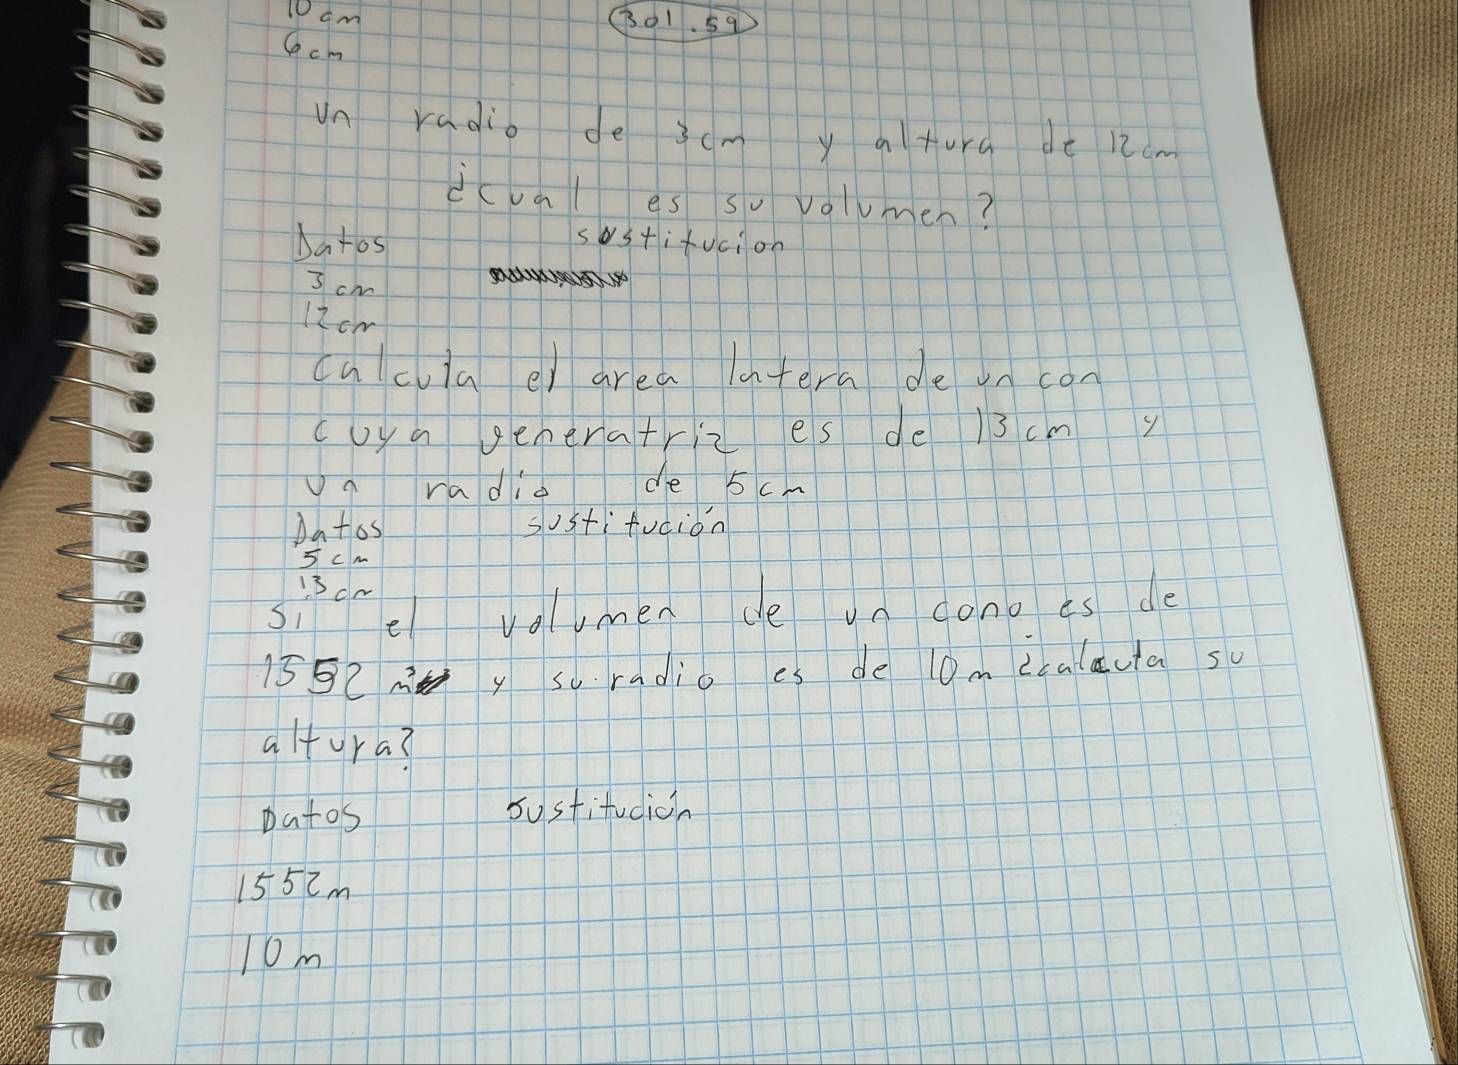 10 cm
301.59
6cm
Un radio de 3cm y altura de 12cm
¿cual es su volumen?
Datos sustitucion
3 cm
12cm
calcula el area latera de un con
cuya generatriz es de 13 cm y
un radio de 5cm
Datos sustitución
5 cm
13 cm
Si el volumen de un cono es de
1552 m³ y su radio es de 10 m ¿calacuta su
altura?
Datos sustitución
1552m
10m